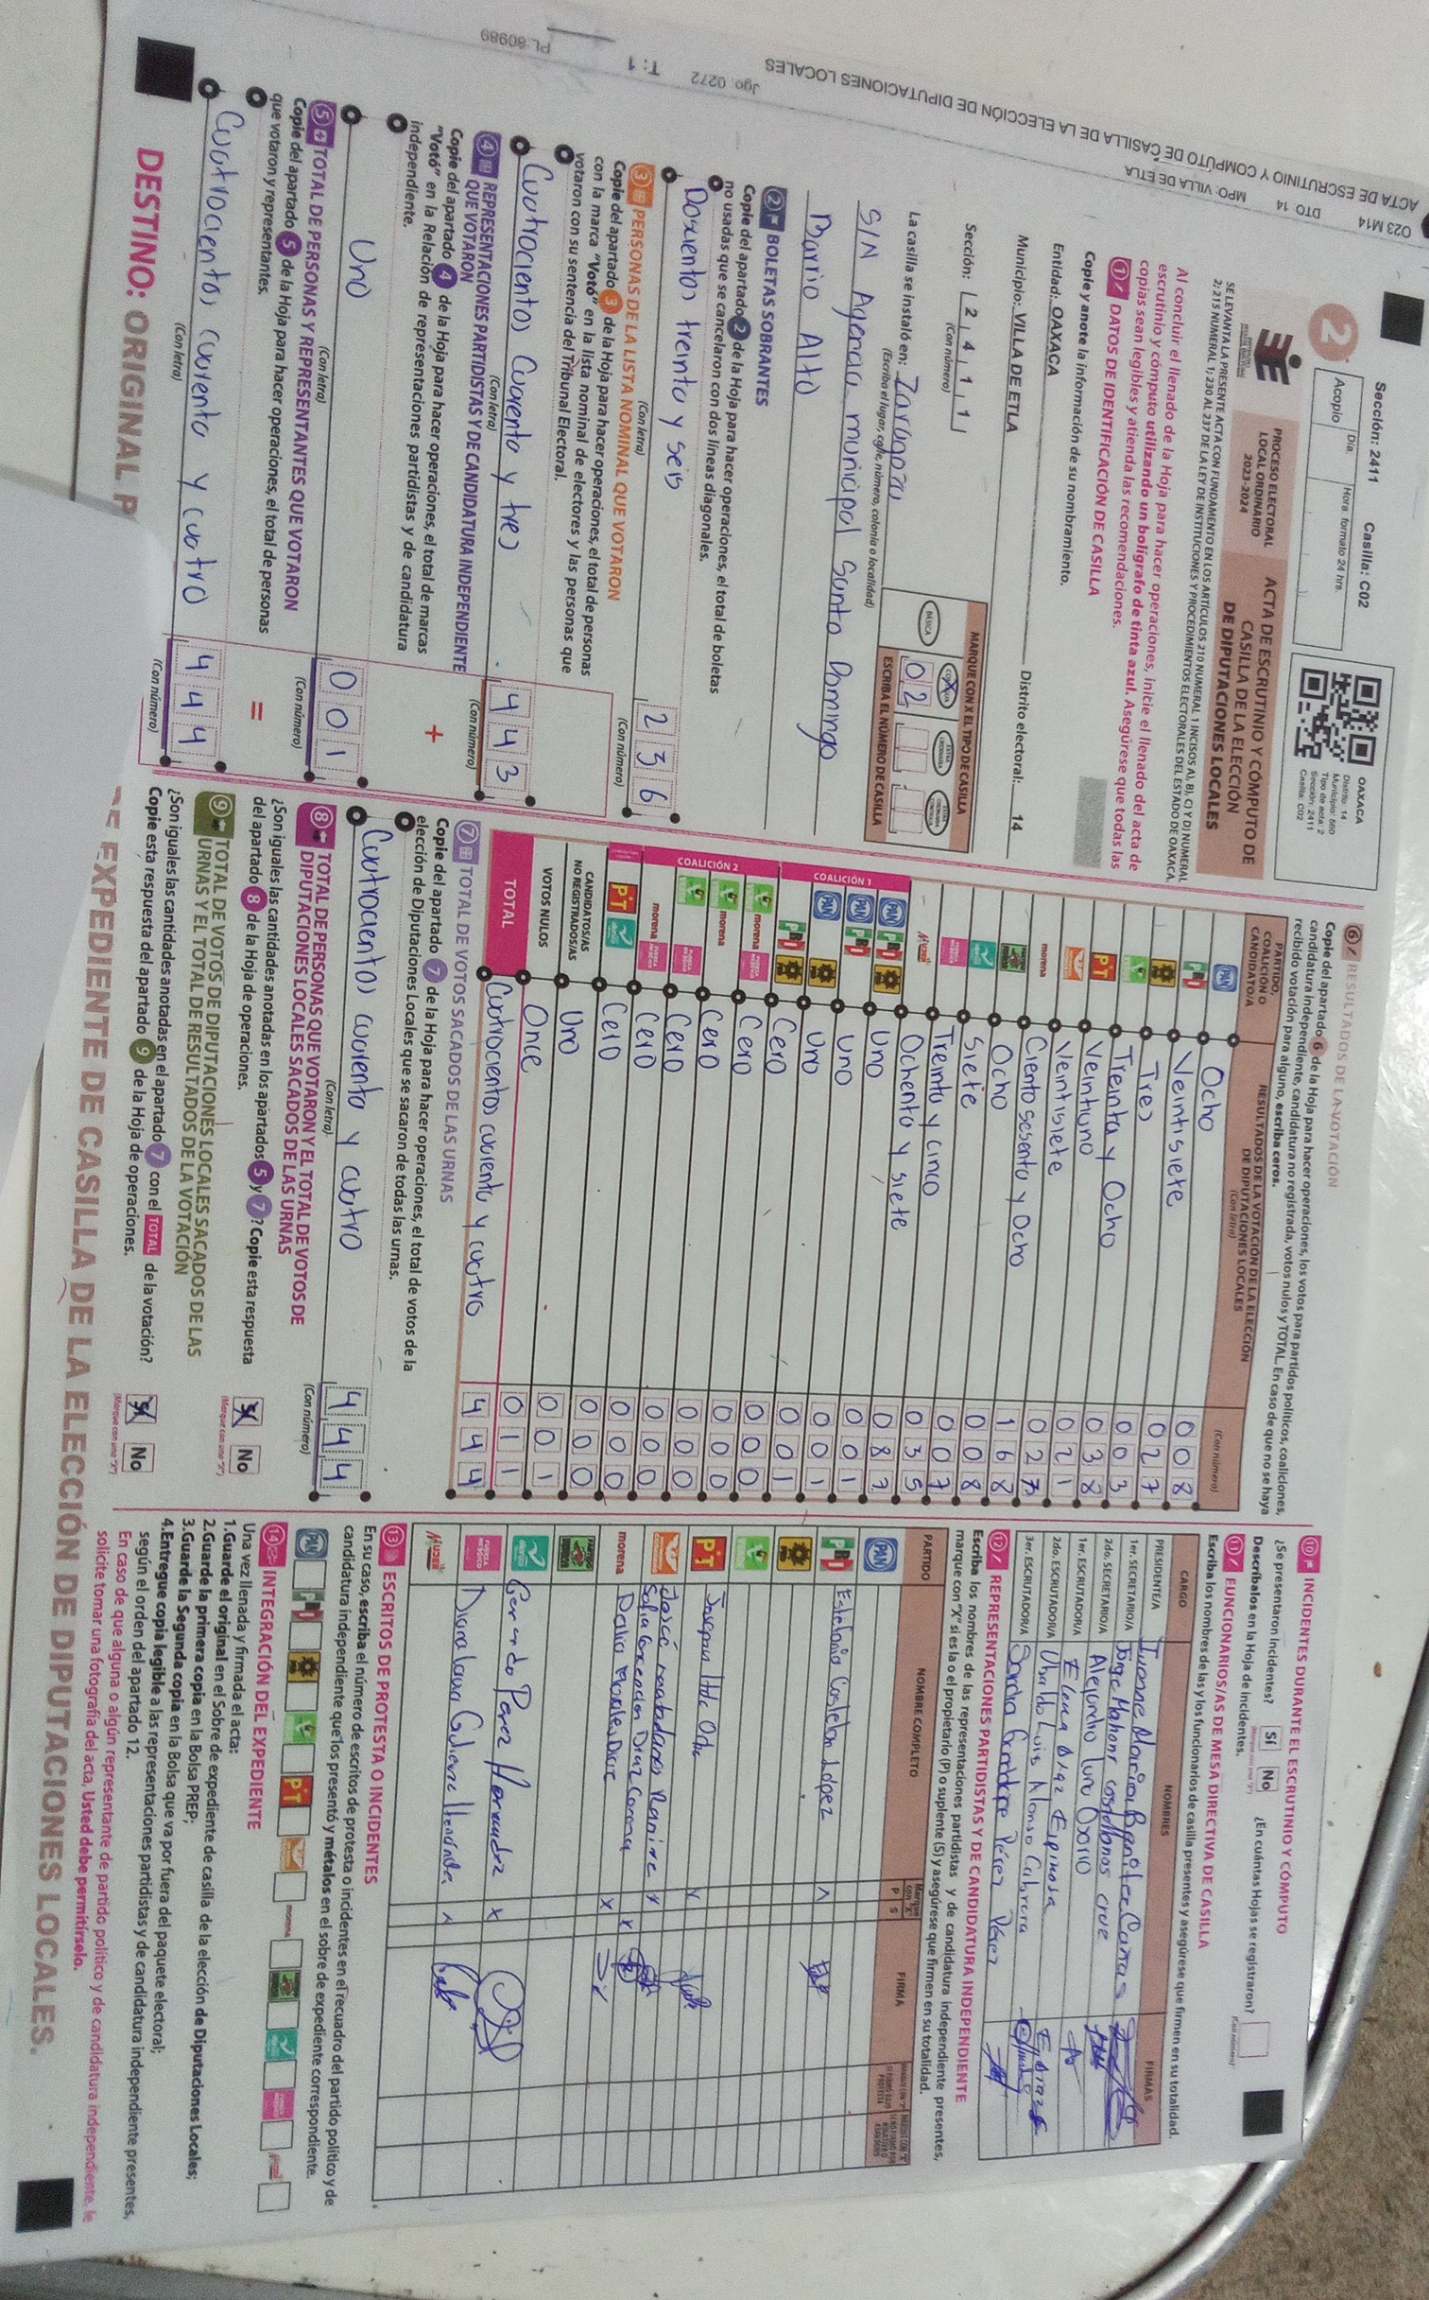 Sección: 2411 Casilla: C02
Acopio
Día.
Hora: formato 24 hrs.
OAXACA
Distrito: 14
Municipio: 560
Tipo de acta: 2
Sección: 2411
Casilla: C02
2
PROCESO ELECTORAL
LOCAL ORDINARIO
2023-2024
ACTA DE ESCRUTINIO Y CÓMPUTO DE
CASILLA DE LA ELECCIÓN
DE DIPUTACIONES LOCALES
Al concluir el llenado de la Hoja para hacer operaciones, inicie el llenado del acta de
escrutinio y cómputo utilizando un bolígrafo de tinta azul. Asegúrese que todas las
copias sean legibles y atienda las recomendaciones.
1 DATOS DE IDENTIFICACIÓN DE CASILLA
Copie y anote la información de su nombramiento.
Entidad: OAXACA
Municipio: VILLA DE ETLA Distrito electoral: 14
Sección: 2 4 1 1
(Con número)
MARQUE CON X EL TIPO DE CASILLA
BÁSICA
ESCRIBA EL NÚMERO DE CASILLA
02
La casilla se instaló en: Zaragoza
(Escriba el lugar, calle, número, colonia o localidad)
S/N Agencia municipal Santo Domingo
Barrio Alto
2 BOLETAS SOBRANTES
Copie del apartado 2 de la Hoja para hacer operaciones, el total de boletas
no usadas que se cancelaron con dos líneas diagonales.
Doscientos treinta y seis 236
(Con letra) (Con número)
3 PERSONAS DE LA LISTA NOMINAL QUE VOTARON
Copie del apartado 3 de la Hoja para hacer operaciones, el total de personas
con la marca "Votó" en la lista nominal de electores y las personas que
votaron con su sentencia del Tribunal Electoral.
Cuatrocientos Cuarenta y tres 443
(Con letra) (Con número)
4 REPRESENTACIONES PARTIDISTAS Y DE CANDIDATURA INDEPENDIENTE
QUE VOTARON
Copie del apartado 4 de la Hoja para hacer operaciones, el total de marcas
"Votó" en la Relación de representaciones partidistas y de candidatura
independiente.
+
Uno 001
(Con letra) (Con número)
5 TOTAL DE PERSONAS Y REPRESENTANTES QUE VOTARON
Copie del apartado 5 de la Hoja para hacer operaciones, el total de personas
que votaron y representantes.
=
Cuatrocientos cuarenta y cuatro 444
(Con letra) (Con número)
6 RESULTADOS DE LA VOTACIÓN
Copie del apartado 6 de la Hoja para hacer operaciones, los votos para partidos políticos, coaliciones,
candidatura independiente, candidatura no registrada, votos nulos y TOTAL. En caso de que no se haya
recibido votación para alguno, escriba ceros.
PARTIDO,
COALICIÓN O
CANDIDATO/A
RESULTADOS DE LA VOTACIÓN DE LA ELECCIÓN
DE DIPUTACIONES LOCALES
(Con letra)
(Con número)
PAN Ocho 008
PRI Veintisiete 027
Tres 003
Treinta y Ocho 038
PT Veintiuno 021
Veintisiete 027
morena Ciento sesenta y Ocho 168
Ocho 008
Siete 007
Treinta y cinco 035
Ochenta y siete 087
COALICIÓN 1
PAN PRI Uno 001
PAN PRI Uno 001
PAN Uno 001
PRI Cero 000
COALICIÓN 2
morena Cero 000
morena Cero 000
Cero 000
morena Cero 000
PT Cero 000
CANDIDATOS/AS
NO REGISTRADOS/AS Uno 001
VOTOS NULOS Once 011
TOTAL Cuatrocientos cuarenta y cuatro 444
7 TOTAL DE VOTOS SACADOS DE LAS URNAS
Copie del apartado 7 de la Hoja para hacer operaciones, el total de votos de la
elección de Diputaciones Locales que se sacaron de todas las urnas.
Cuatrocientos cuarenta y cuatro 444
(Con letra) (Con número)
8 TOTAL DE PERSONAS QUE VOTARON Y EL TOTAL DE VOTOS DE
DIPUTACIONES LOCALES SACADOS DE LAS URNAS
¿Son iguales las cantidades anotadas en los apartados 5 y 7? Copie esta respuesta
del apartado 8 de la Hoja de operaciones.
Sí No
9 TOTAL DE VOTOS DE DIPUTACIONES LOCALES SACADOS DE LAS
URNAS Y EL TOTAL DE RESULTADOS DE LA VOTACIÓN
¿Son iguales las cantidades anotadas en el apartado 7 con el TOTAL de la votación?
Copie esta respuesta del apartado 9 de la Hoja de operaciones.
Sí No
10 INCIDENTES DURANTE EL ESCRUTINIO Y CÓMPUTO
¿Se presentaron incidentes? Sí No ¿En cuántas Hojas se registraron?
Descríbalos en la Hoja de incidentes.
11 FUNCIONARIOS/AS DE MESA DIRECTIVA DE CASILLA
Escriba los nombres de las y los funcionarios de casilla presentes y asegúrese que firmen en su totalidad.
CARGO NOMBRES FIRMAS
PRESIDENTE/A
1er. SECRETARIO/A
2do. SECRETARIO/A
1er. ESCRUTADOR/A Elena Diaz Espinosa
2do. ESCRUTADOR/A Ubaldo Luis Alonso Cabrera
3er. ESCRUTADOR/A
12 REPRESENTACIONES PARTIDISTAS Y DE CANDIDATURA INDEPENDIENTE
Escriba los nombres de las representaciones partidistas y de candidatura independiente presentes,
marque con "X" si es la o el propietario (P) o suplente (S) y asegúrese que firmen en su totalidad.
PARTIDO NOMBRE COMPLETO P S FIRMA
PAN
PRI Estefania Castellon López
PT
morena
Gerardo Perez Hernandez
13 ESCRITOS DE PROTESTA O INCIDENTES
En su caso, escriba el número de escritos de protesta o incidentes en el recuadro del partido político y de
candidatura independiente que los presentó y métalos en el sobre de expediente correspondiente.
PAN PRI PT morena
14 INTEGRACIÓN DEL EXPEDIENTE
Una vez llenada y firmada el acta:
1.Guarde el original en el Sobre de expediente de casilla de la elección de Diputaciones Locales;
2.Guarde la primera copia en la Bolsa PREP;
3.Guarde la Segunda copia en la Bolsa que va por fuera del paquete electoral;
4.Entregue copia legible a las representaciones partidistas y de candidatura independiente presentes,
según el orden del apartado 12.
En caso de que alguna o algún representante de partido político y de candidatura independiente, le
solicite tomar una fotografía del acta, Usted debe permitírselo.
DESTINO: ORIGINAL P
DE EXPEDIENTE DE CASILLA DE LA ELECCIÓN DE DIPUTACIONES LOCALES.
023 M14 DTO 14 MPO: VILLA DE ETLA
ACTA DE ESCRUTINIO Y COMPUTO DE CASILLA DE LA ELECCIÓN DE DIPUTACIONES LOCALES
Jgo. 0272 T: 1 PL 80989